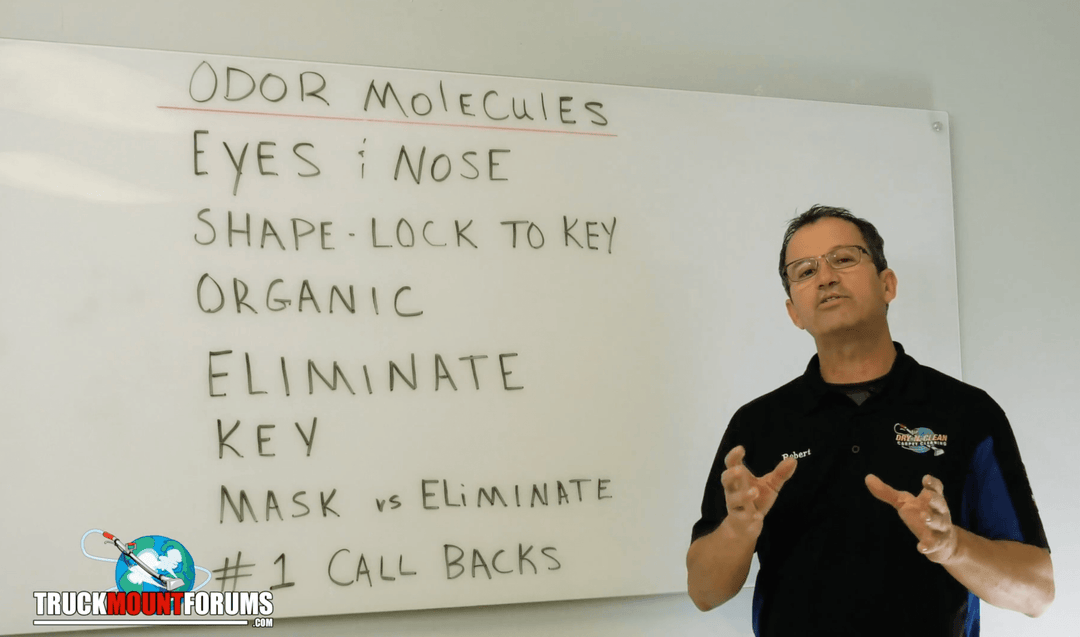 ODOR MOLECULES
EYES & NOSE
SHAPE - LOCK TO KEY
ORGANIC
ELIMINATE
KEY
MASK vs ELiMINATE
#1 CALL BACKS
Robert
DRY-N-CLEAN
CARPET CLEANING
TRUCKMOUNTFORUMS
.COM